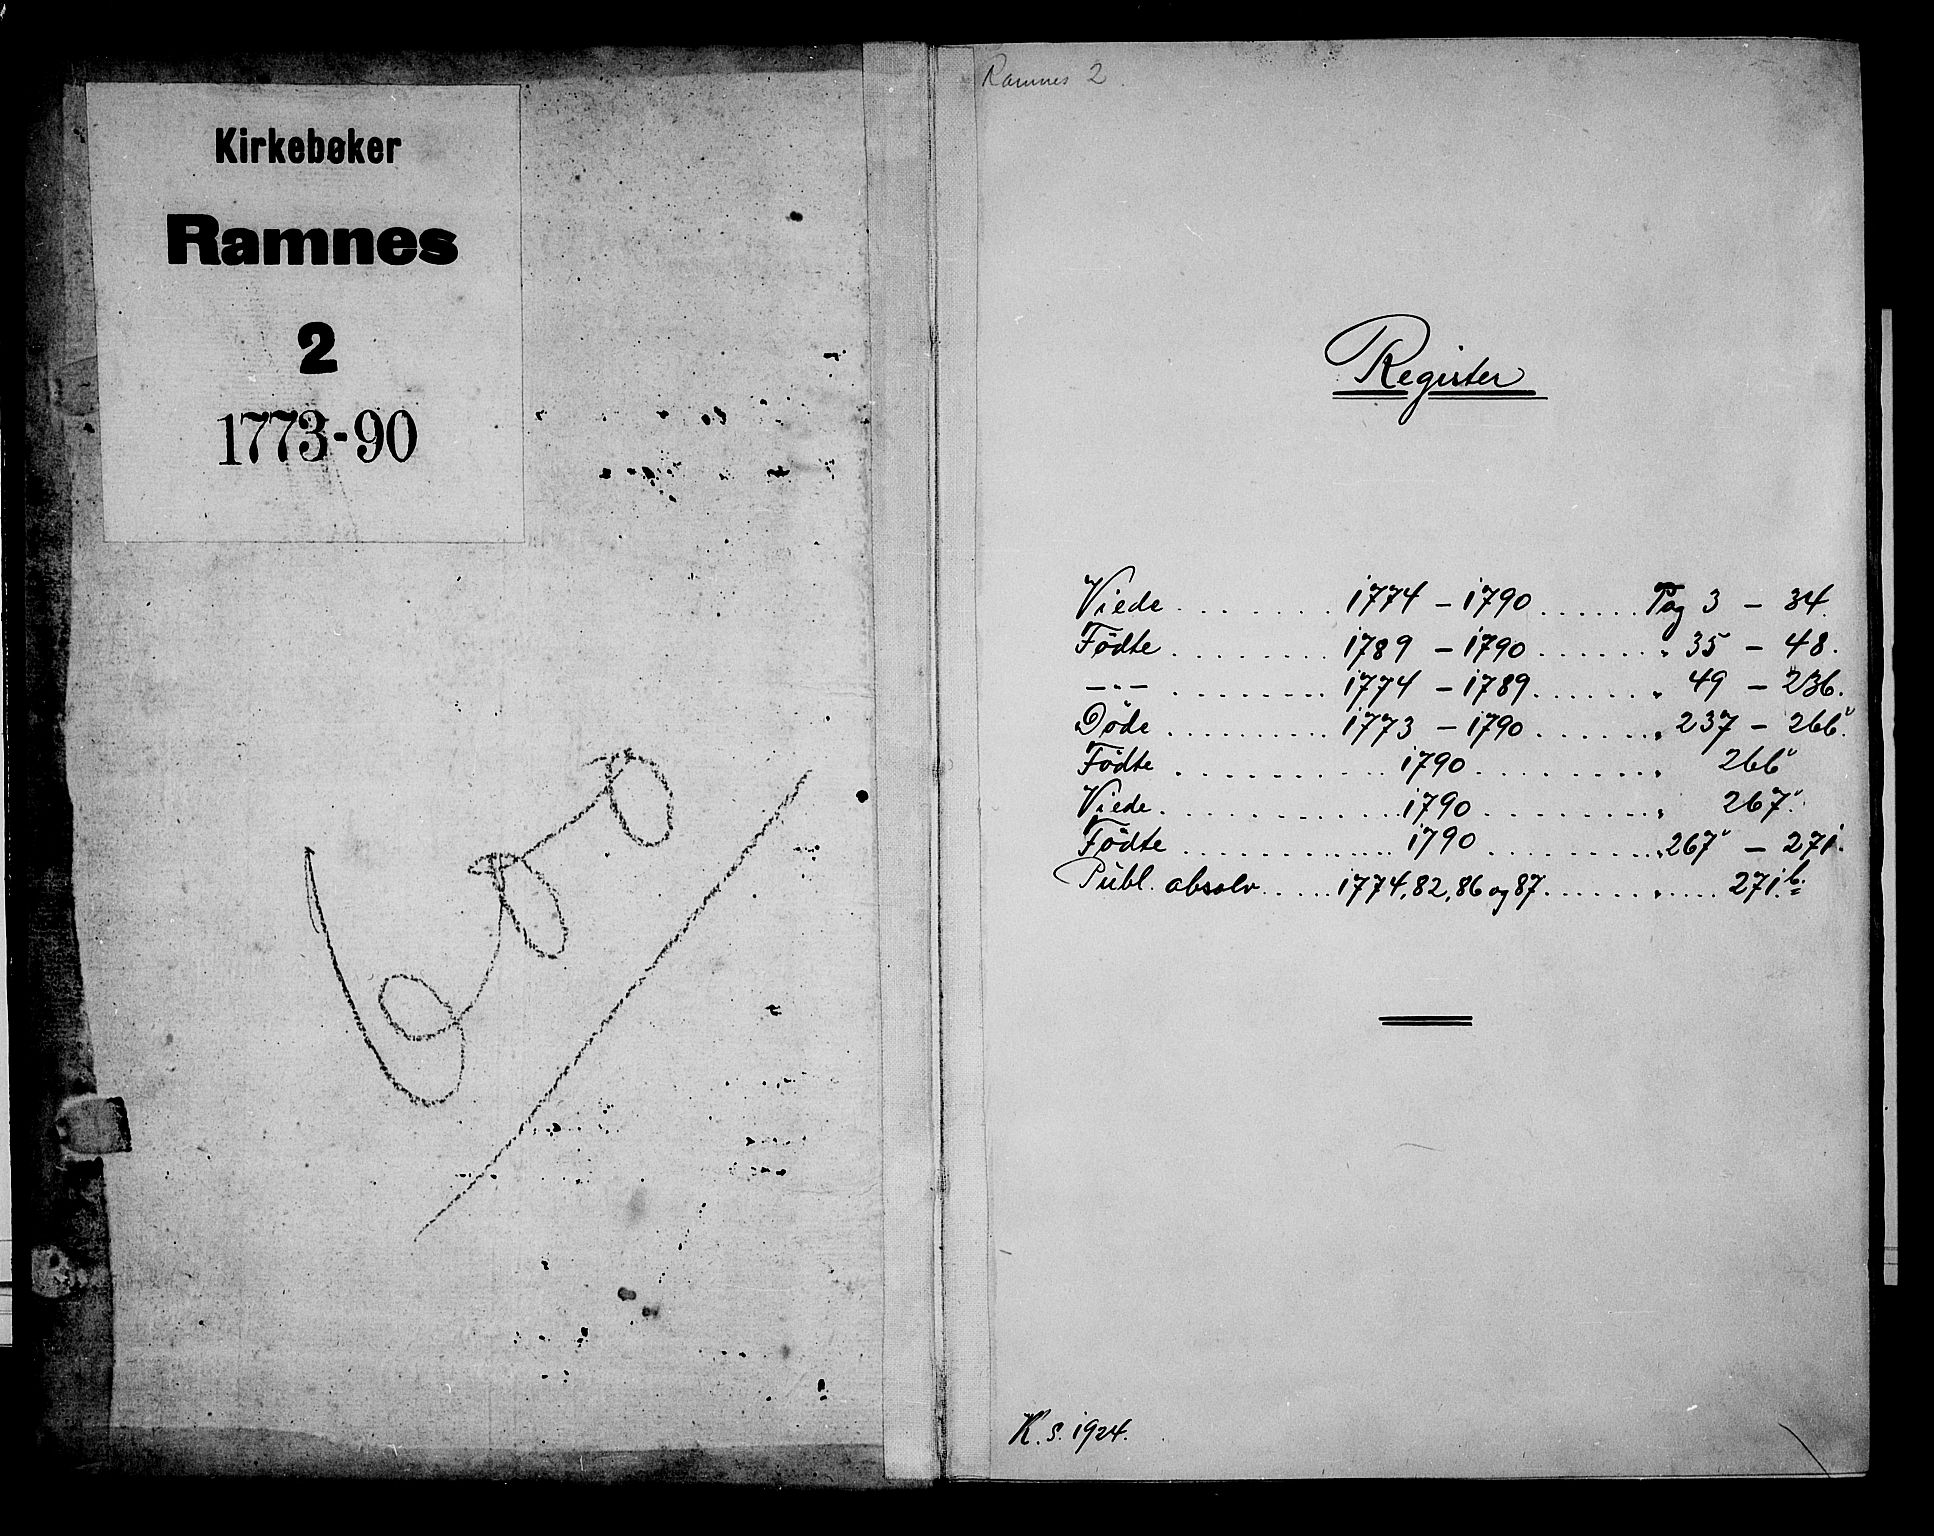 Kirkebøker
Ramnes
2
1773-90
600
Ramnes 2
Register
Viede . . . . . . . 1774 – 1790 . . . . . . Pag 3 – 34.
Födte . . . . . . . 1789 – 1790 . . . . . . „ 35 – 48.
–"– . . . . . . . 1774 – 1789 . . . . . . „ 49 – 236.
Döde . . . . . . . 1773 – 1790 . . . . . . „ 237 – 266.
Födte . . . . . . . 1790 . . . . . . „ 266
Viede . . . . . . . 1790 . . . . . . „ 267.
Födte . . . . . . . 1790 . . . . . . „ 267 – 271.
Publ. absolv . . . . 1774, 82, 86 og 87 . . . . . . „ . . . . 271.b.
K. S. 1924.